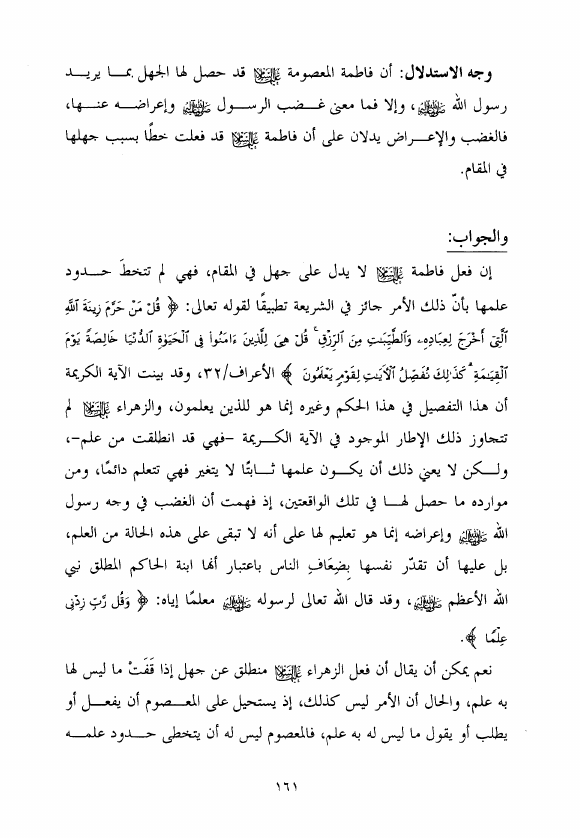 وجه الاستدلال: أن فاطمة المعصومة عليها السلام قد حصل لها الجهل بمـا يريـد
رسول الله ﷺ، وإلا فما معنى غـضب الرسـول ﷺ وإعراضـه عنـها،
فالغضب والإعـراض يدلان على أن فاطمة عليها السلام قد فعلت خطًا بسبب جهلها
في المقام.
والجواب:
إن فعل فاطمة عليها السلام لا يدل على جهل في المقام، فهي لم تتخطَ حـدود
علمها بأنّ ذلك الأمر جائز في الشريعة تطبيقًا لقوله تعالى: ﴿ قُلْ مَنْ حَرَّمَ زِينَةَ اللَّهِ
الَّتِي أَخْرَجَ لِعِبَادِهِۦ وَالطَّيِّبَٰتِ مِنَ الرِّزْقِ ۚ قُلْ هِيَ لِلَّذِينَ ءَامَنُوا فِي الْحَيَوٰةِ الدُّنْيَا خَالِصَةً يَوْمَ
الْقِيَٰمَةِ ۗ كَذَٰلِكَ نُفَصِّلُ الْآيَٰتِ لِقَوْمٍ يَعْلَمُونَ ﴾ الأعراف/٣٢، وقد بينت الآية الكريمة
أن هذا التفصيل في هذا الحكم وغيره إنما هو للذين يعلمون، والزهراء عليها السلام لم
تتجاوز ذلك الإطار الموجود في الآية الكـريمة –فهي قد انطلقت من علم–،
ولـكن لا يعني ذلك أن يكـون علمها ثـابتًا لا يتغير فهي تتعلم دائمًا، ومن
موارده ما حصل لهـا في تلك الواقعتين، إذ فهمت أن الغضب في وجه رسول
الله ﷺ وإعراضه إنما هو تعليم لها على أنه لا تبقى على هذه الحالة من العلم،
بل عليها أن تقدّر نفسها بِضِعَافِ الناس باعتبار أنها ابنة الحاكم المطلق نبي
الله الأعظم ﷺ، وقد قال الله تعالى لرسوله ﷺ معلمًا إياه: ﴿ وَقُل رَّبِّ زِدْنِي
عِلْمًا ﴾.
نعم يمكن أن يقال أن فعل الزهراء عليها السلام منطلق عن جهل إذا قَفَتْ ما ليس لها
به علم، والحال أن الأمر ليس كذلك، إذ يستحيل على المعـصوم أن يفعـل أو
يطلب أو يقول ما ليس له به علم، فالمعصوم ليس له أن يتخطى حـدود علمـه
١٦١